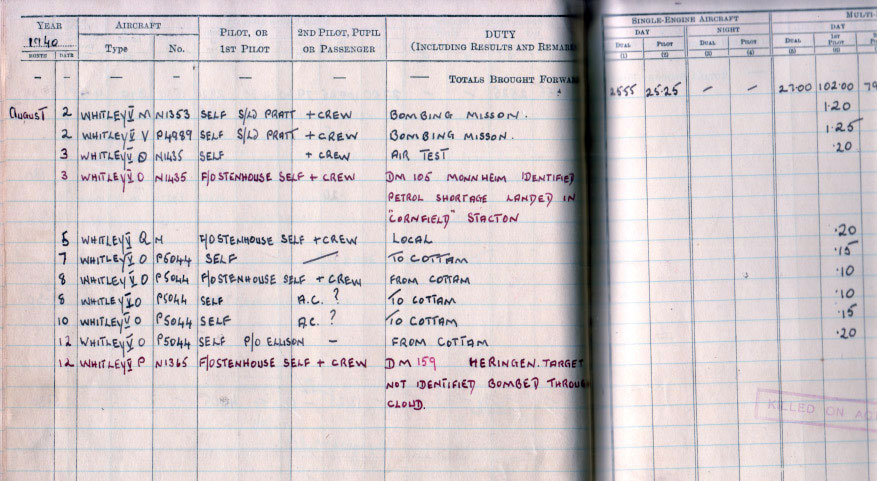 YEAR AIRCRAFT PILOT, OR 2ND PILOT, PUPIL DUTY SINGLE-ENGINE AIRCRAFT MULTI-
1940 Type No. 1ST PILOT OR PASSENGER (INCLUDING RESULTS AND REMARK DAY NIGHT DAY
MONTH DATE DUAL PILOT DUAL PILOT DUAL 1ST PILOT
(1) (2) (3) (4) (5) (6)
— — — — — — — TOTALS BROUGHT FORWAR 2555 25.25 — — 27.00 102.00 79
AUGUST 2 WHITLEY V M N1353 SELF S/LD PRATT + CREW BOMBING MISSON. 1.20
2 WHITLEY V V P4989 SELF S/LD PRATT + CREW BOMBING MISSON. 1.25
3 WHITLEY V O N1435 SELF + CREW AIR TEST .20
3 WHITLEY V O N1435 F/OSTENHOUSE SELF + CREW DM 105 MONNHEIM IDENTIFIED
PETROL SHORTAGE LANDED IN
"CORNFIELD" STACTON
5 WHITLEY V Q N F/OSTENHOUSE SELF + CREW LOCAL .20
7 WHITLEY V O P5044 SELF — TO COTTAM .15
8 WHITLEY V O P5044 F/OSTENHOUSE SELF + CREW FROM COTTAM .10
8 WHITLEY V O P5044 SELF A.C. ? TO COTTAM .10
10 WHITLEY V O P5044 SELF A.C. ? TO COTTAM .15
12 WHITLEY V O P5044 SELF P/O ELLISON — FROM COTTAM .20
12 WHITLEY V P N1365 F/OSTENHOUSE SELF + CREW DM 159 HERINGEN. TARGET
NOT IDENTIFIED BOMBED THROUG
CLOUD.
KILLED ON AC